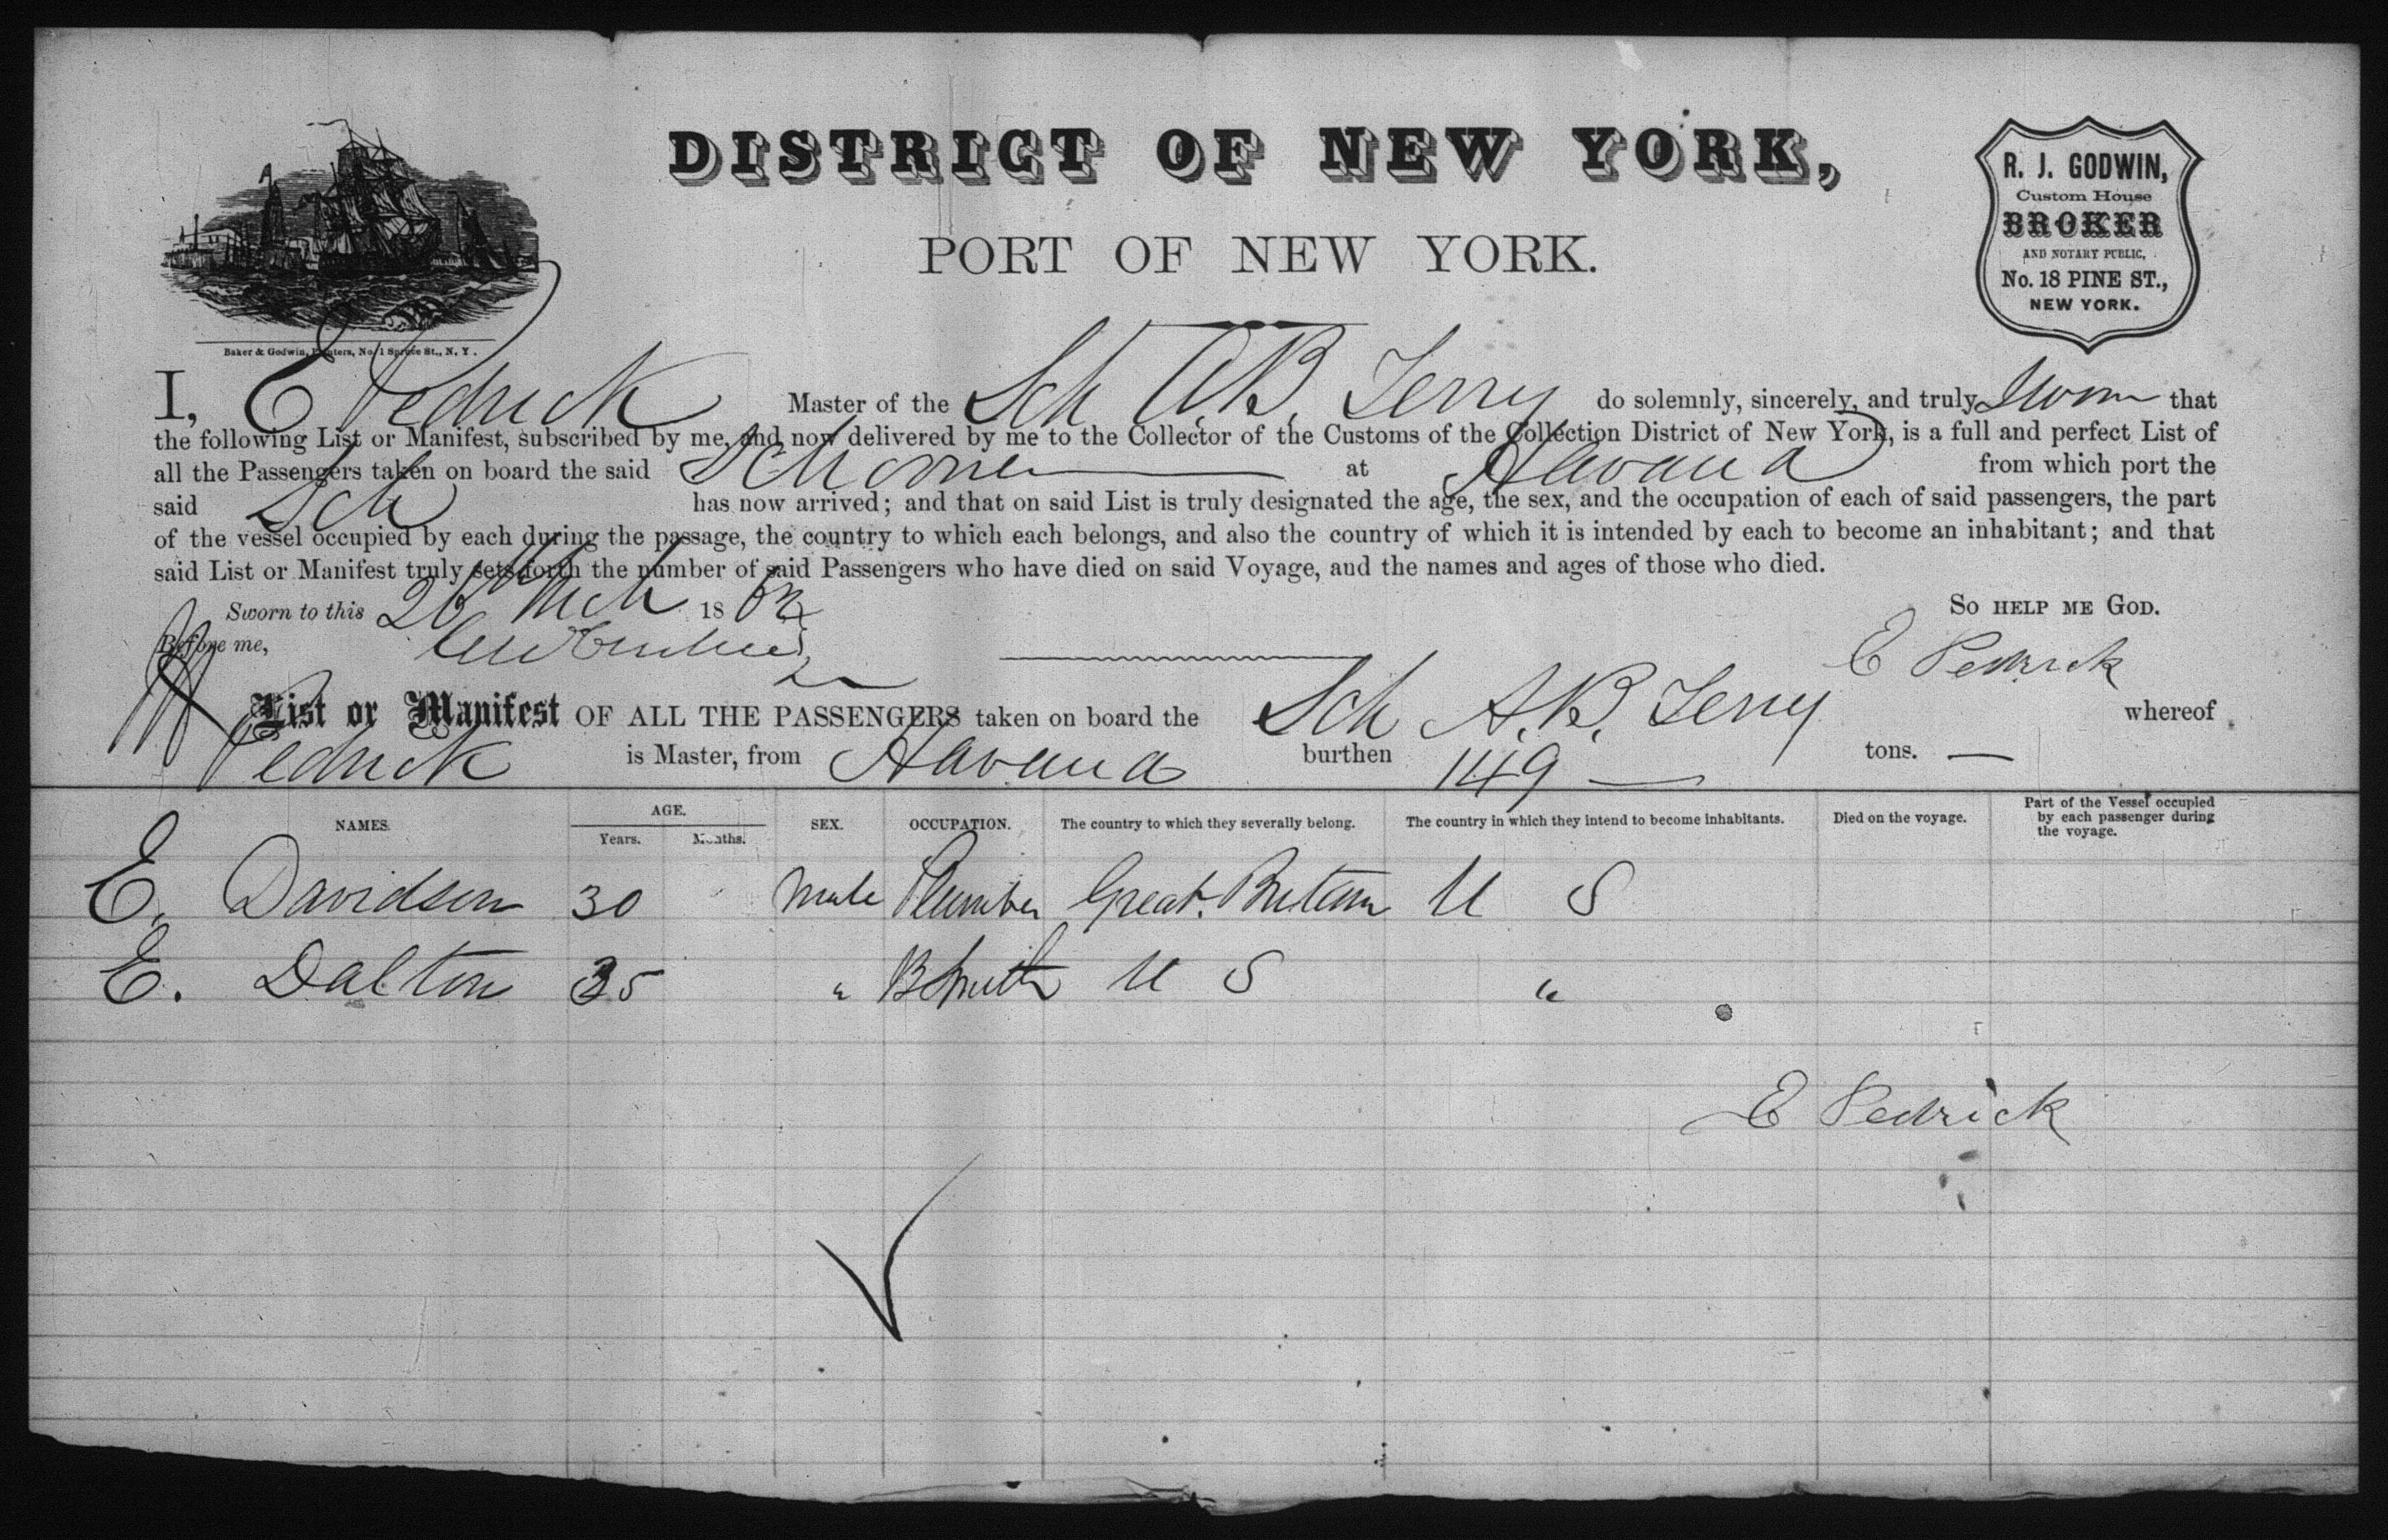 DISTRICT OF NEW YORK,
PORT OF NEW YORK.
R. J. GODWIN,
Custom House
BROKER
AND NOTARY PUBLIC,
No. 18 PINE ST.,
NEW YORK.
Baker & Godwin, Printers, No. 1 Spruce St., N. Y.
I, E Pedrick Master of the Sch A.B. Terry do solemnly, sincerely, and truly Swear that
the following List or Manifest, subscribed by me, and now delivered by me to the Collector of the Customs of the Collection District of New York, is a full and perfect List of
all the Passengers taken on board the said Schooner at Havana from which port the
said Sch has now arrived; and that on said List is truly designated the age, the sex, and the occupation of each of said passengers, the part
of the vessel occupied by each during the passage, the country to which each belongs, and also the country of which it is intended by each to become an inhabitant; and that
said List or Manifest truly sets forth the number of said Passengers who have died on said Voyage, and the names and ages of those who died.
Sworn to this 26th Mch 186 SO HELP ME GOD.
Before me, E Pedrick
List or Manifest OF ALL THE PASSENGERS taken on board the Sch A.B. Terry whereof
Pedrick is Master, from Havana burthen 149 tons.
NAMES. AGE. Years. Months. SEX. OCCUPATION. The country to which they severally belong. The country in which they intend to become inhabitants. Died on the voyage. Part of the Vessel occupied by each passenger during the voyage.
E. Davidson 30 Male Plumber Great Britain U S
E. Dalton 35 " B Smith U S "
E Pedrick